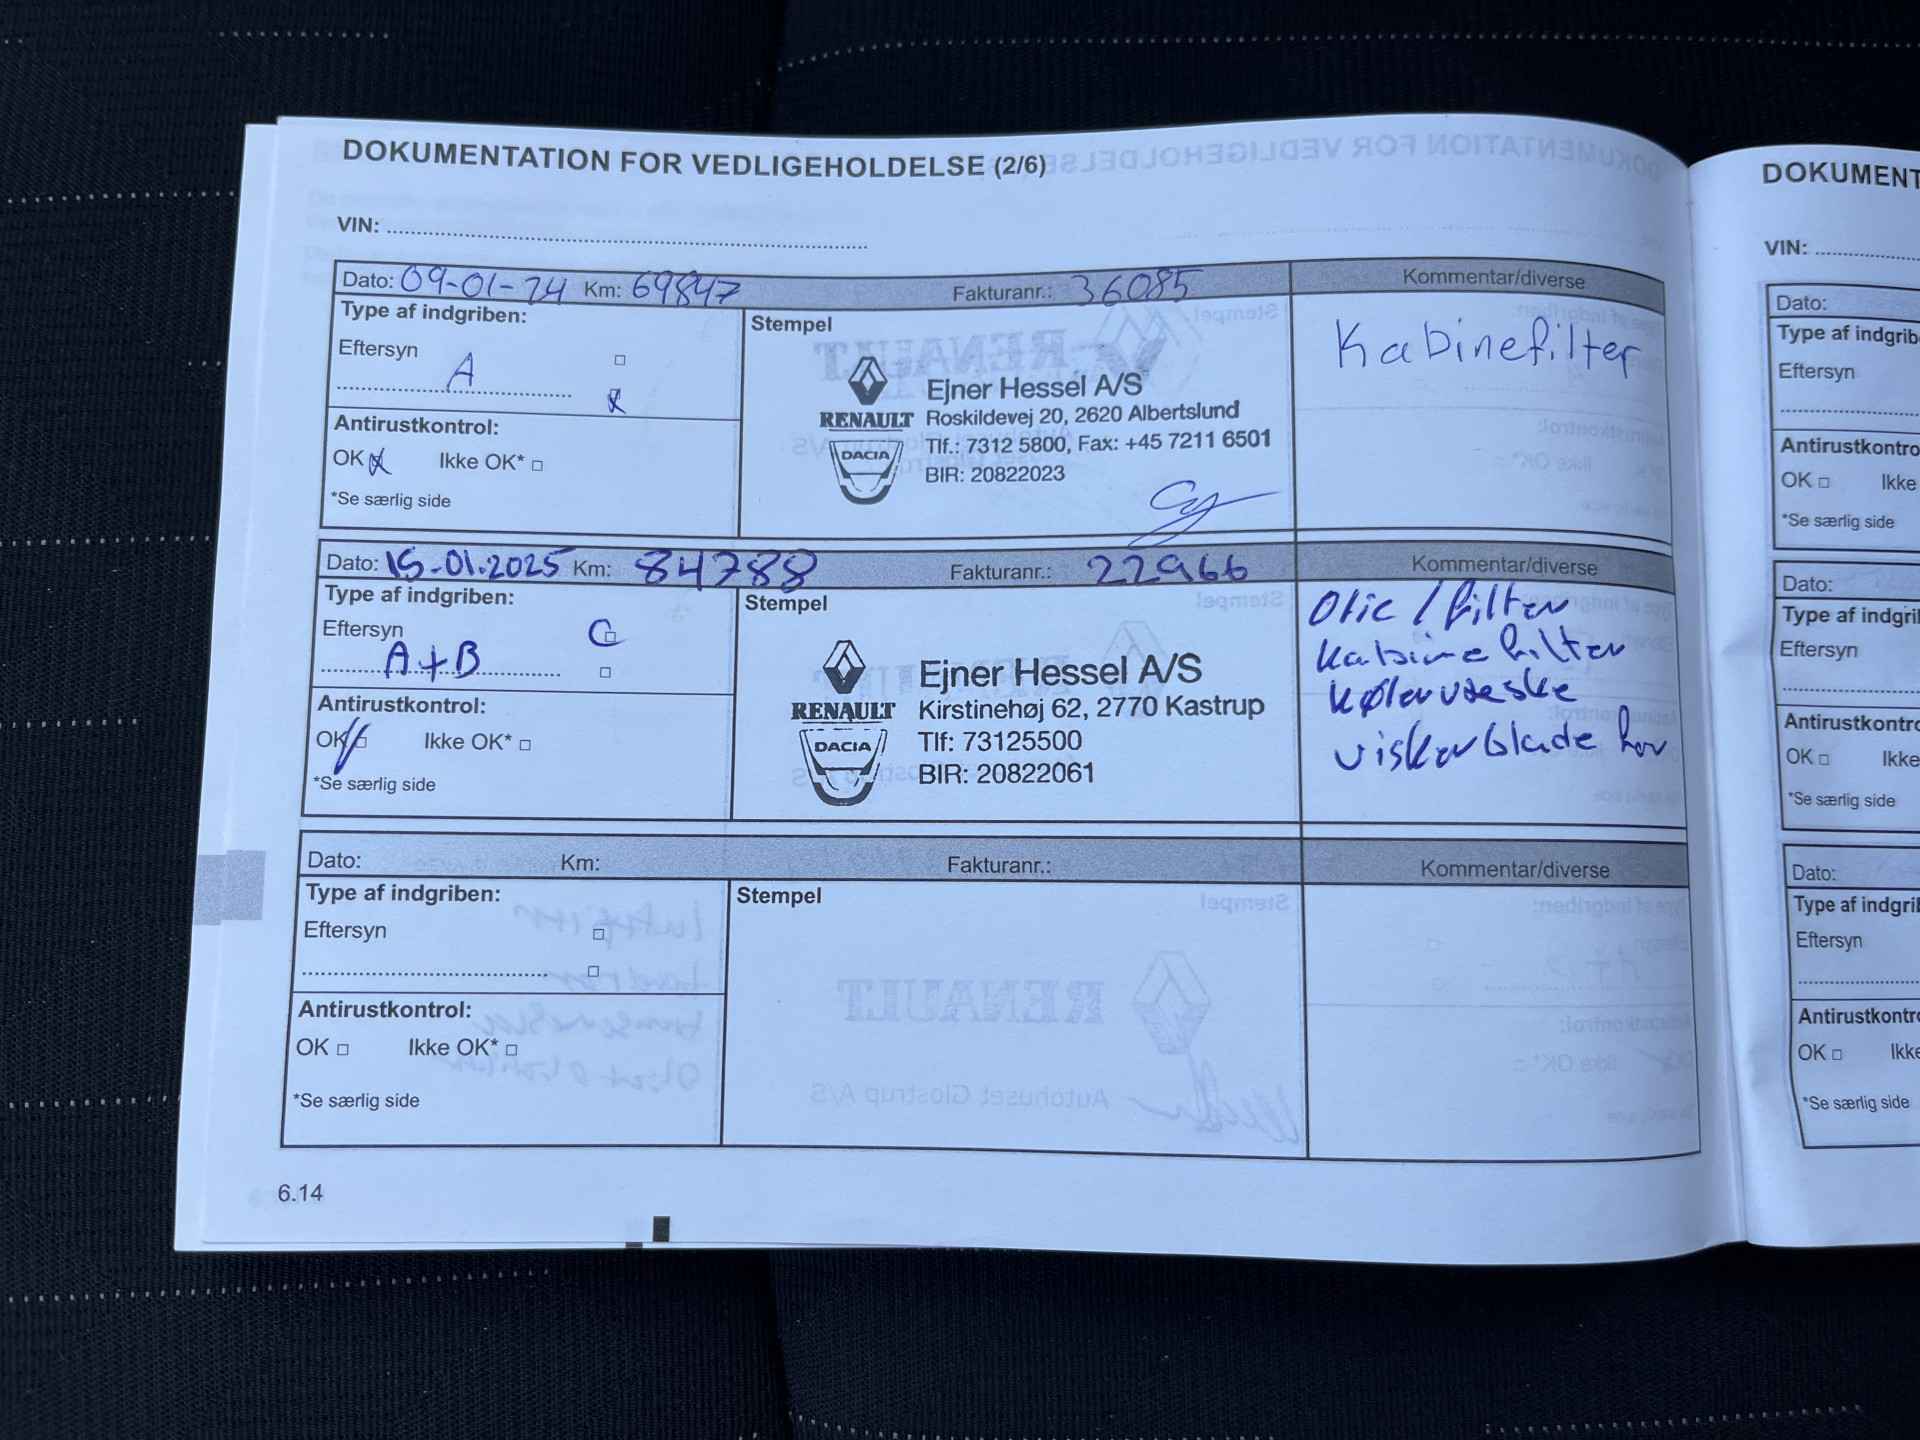 DOKUMENTATION FOR VEDLIGEHOLDELSE (2/6)
VIN:
Dato: 09-01-24 Km: 69847 Fakturanr.: 36085 Kommentar/diverse
Type af indgriben:
Eftersyn
A
Antirustkontrol:
OK Ikke OK*
*Se særlig side
Stempel
RENAULT
DACIA
Ejner Hessel A/S
Roskildevej 20, 2620 Albertslund
Tlf.: 7312 5800, Fax: +45 7211 6501
BIR: 20822023
Kabinefilter
Dato: 15-01.2025 Km: 84788 Fakturanr.: 22966 Kommentar/diverse
Type af indgriben:
Eftersyn C
A+B
Antirustkontrol:
OK Ikke OK*
*Se særlig side
Stempel
RENAULT
DACIA
Ejner Hessel A/S
Kirstinehøj 62, 2770 Kastrup
Tlf: 73125500
BIR: 20822061
Olie / filter
Kabinefilter
Kølervæske
viskerblade for
Dato: Km: Fakturanr.: Kommentar/diverse
Type af indgriben:
Eftersyn
Antirustkontrol:
OK Ikke OK*
*Se særlig side
Stempel
6.14
DOKUMENT
VIN:
Dato:
Type af indgrib
Eftersyn
Antirustkontro
OK Ikke
*Se særlig side
Dato:
Type af indgri
Eftersyn
Antirustkontro
OK Ikke
*Se særlig side
Dato:
Type af indgri
Eftersyn
Antirustkontro
OK Ikke
*Se særlig side